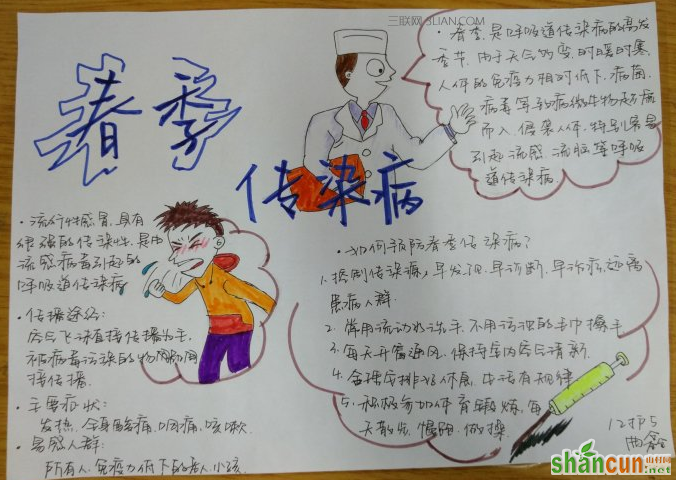 三联网 3LIAN.COM
春季
传染病
·春季,是呼吸道传染病的高发
季节,由于天气多变,时暖时寒,
人体的免疫力相对低下,病菌,
病毒等致病微生物趁虚
而入,侵袭人体,特别容易
引起流感,流脑等呼吸
道传染病.
·流行性感冒,具有
很强的传染性,是由
流感病毒引起的
呼吸道传染病
·传播途径:
空气飞沫直接传播为主,
被病毒污染的物品
接传播.
·主要症状:
发热、全身酸痛、咽痛、咳嗽.
·易感人群:
所有人,免疫力低下的老人,小孩.
·如何预防春季传染病?
1.控制传染源,早发现,早诊断,早治疗,远离
患病人群.
2.常用流动水洗手,不用污浊的毛巾擦手
3.每天开窗通风,保持室内空气清新
4.合理安排好休息,生活有规律
5.积极参加体育锻炼,每
天散步,慢跑,做操
12护5
shancun
.net